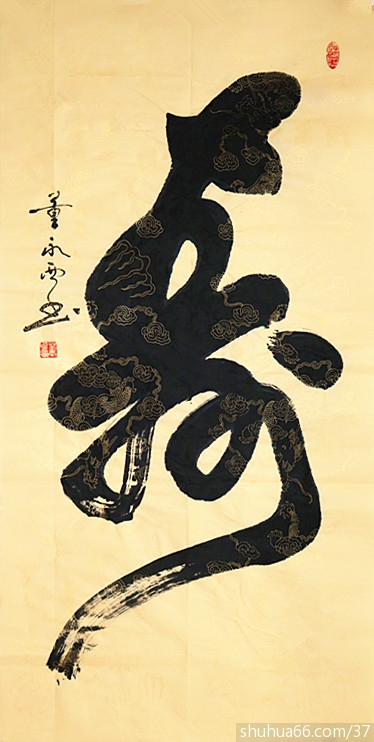 寿
董永西书
shuhua66.com/37